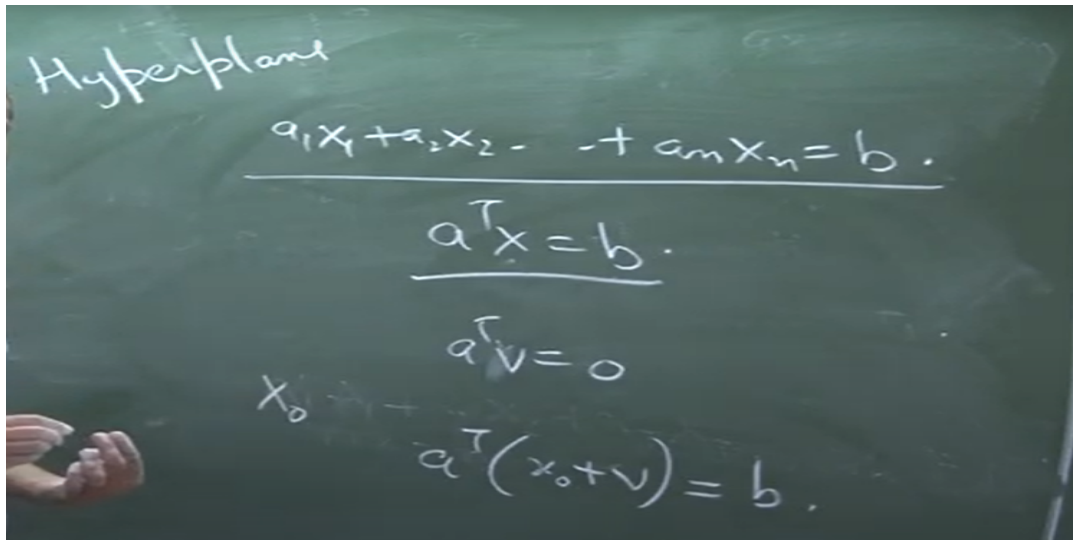 Hyperplane
a₁x₁ + a₂x₂ - - + aₙxₙ = b.
aᵀx = b.
aᵀv = 0
x₀
aᵀ(x₀+v) = b.